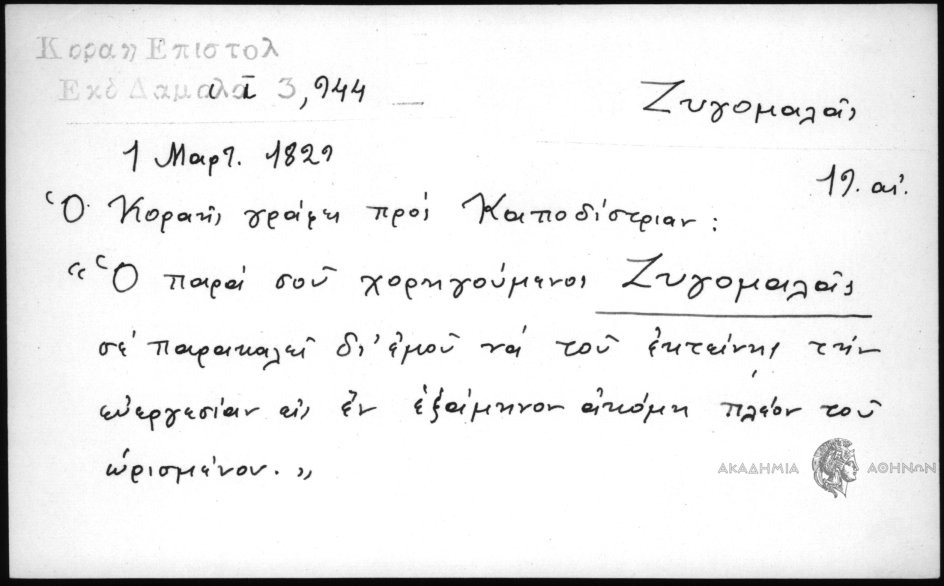 Κοραη Επιστολ
Εκδ Δαμαλα 3, 944
Ζυγομαλᾶς
1 Μαρτ. 1829
19. αἰ.
Ὁ Κοραῆς γράφει πρὸς Καποδίστριαν:
"Ὁ παρὰ σοῦ χορηγούμενος Ζυγομαλᾶς
σὲ παρακαλεῖ δι' ἐμοῦ νὰ τοῦ ἐκτείνῃς τὴν
εὐεργεσίαν εἰς ἓν ἑξάμηνον ἀκόμη πλέον τοῦ
ὡρισμένου."
ΑΚΑΔΗΜΙΑ ΑΘΗΝΩΝ